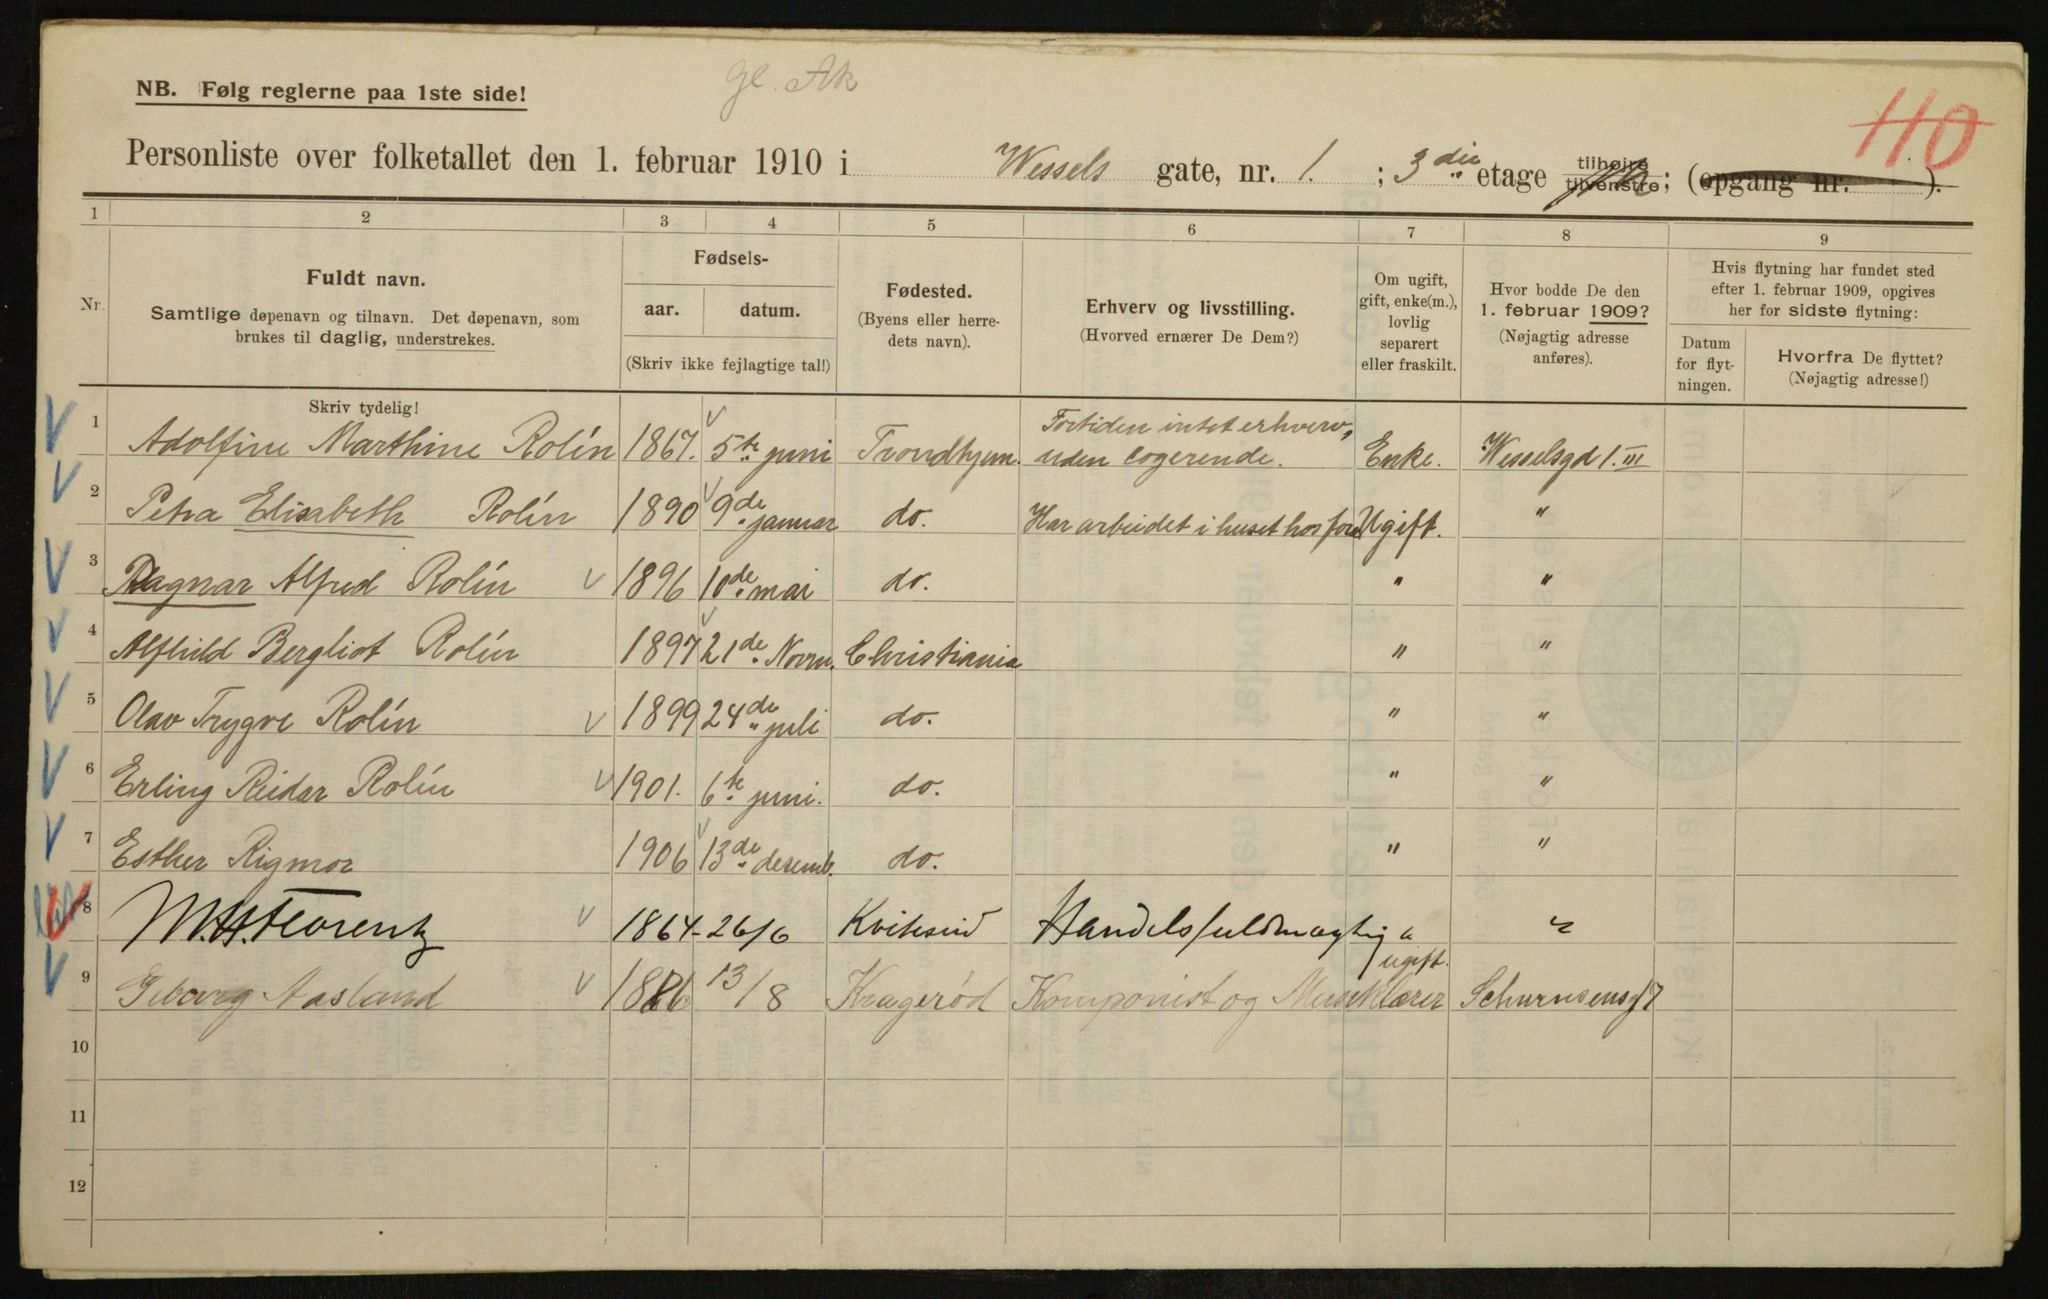 gl. Ak
110
NB. Følg reglerne paa 1ste side!
Personliste over folketallet den 1. februar 1910 i Wessels gate, nr. 1. ; 3die etage tilhøire tilvenstre; (opgang nr. ).
1 2 3 4 5 6 7 8 9
Nr.
Fuldt navn.
Samtlige døpenavn og tilnavn. Det døpenavn, som
brukes til daglig, understrekes.
Skriv tydelig!
Fødsels-
aar. datum.
(Skriv ikke fejlagtige tal!)
Fødested.
(Byens eller herre-
dets navn).
Erhverv og livsstilling.
(Hvorved ernærer De Dem?)
Om ugift,
gift, enke(m.),
lovlig
separert
eller fraskilt.
Hvor bodde De den
1. februar 1909?
(Nøjagtig adresse
anføres).
Hvis flytning har fundet sted
efter 1. februar 1909, opgives
her for sidste flytning:
Datum
for flyt-
ningen.
Hvorfra De flyttet?
(Nøjagtig adresse!)
1 Adolfine Marthine Rolín 1867. 5te juni Trondhjem. Fortiden intet erhverv, uden logerende. Enke. Wesselsgd 1. III
2 Petra Elisabeth Rolín 1890 9de januar do. Har arbeidet i huset hos for Ugift. "
3 Ragnar Alfred Rolín 1896 10de mai do. " "
4 Alfhild Bergliot Rolín 1897 21de Novm. Christiania " "
5 Olav Trygve Rolín 1899 24de juli do. " "
6 Erling Reidar Rolín 1901. 6te juni. do. " "
7 Esther Rigmor 1906 13de desemb. do. " "
8 M. H. Florentz 1864 26/6 Kvikesund Handelsfuldmægtig " "
9 Aasland 1886 13/8 Kragerød Komponist og Musiklærer ugift. 7
10
11
12